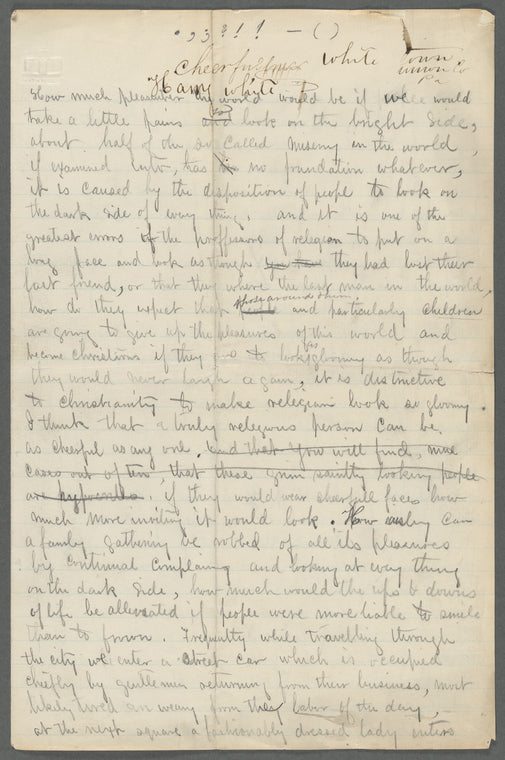 , 0 3 ? ! ! — ( )
Cheerfulness White town
Union Co
Pa
Harry White
How much pleasanter the world would be if we would
take a little pains and look on the bright side,
about half of the so called misery in the world,
if examined into, has no foundation whatever,
it is caused by the disposition of people to look on
the dark side of every thing, and it is one of the
greatest errors of the proffessors of relegion to put on a
long face and look as though you have they had lost their
last friend, or that they where the last man in the world,
how do they expect that those around them and particularly children
are going to give up the pleasures of this world and
become christians if they are to look as gloomy as though
they would never laugh again, it is distructive
to christianity to make relegion look so gloomy.
I think that a truly relegious person can be
as cheerful as any one. And that you will find, nine
cases out of ten, that these grim saintly looking people
are hypocrites. if they would wear cheerfull faces how
much more inviting it would look. How easly can
a family gathering be robbed of all its pleasures
by continual complaining and looking at every thing
on the dark side, how much would the ups & downs
of life be alleviated if people were more liable to smile
than to frown. Frequently while travelling through
the city we enter a street car which is occupied
chiefly by gentlemen returning from their business, most
likely tired an weary from the labor of the day,
at the next square a fashionably dressed lady enters